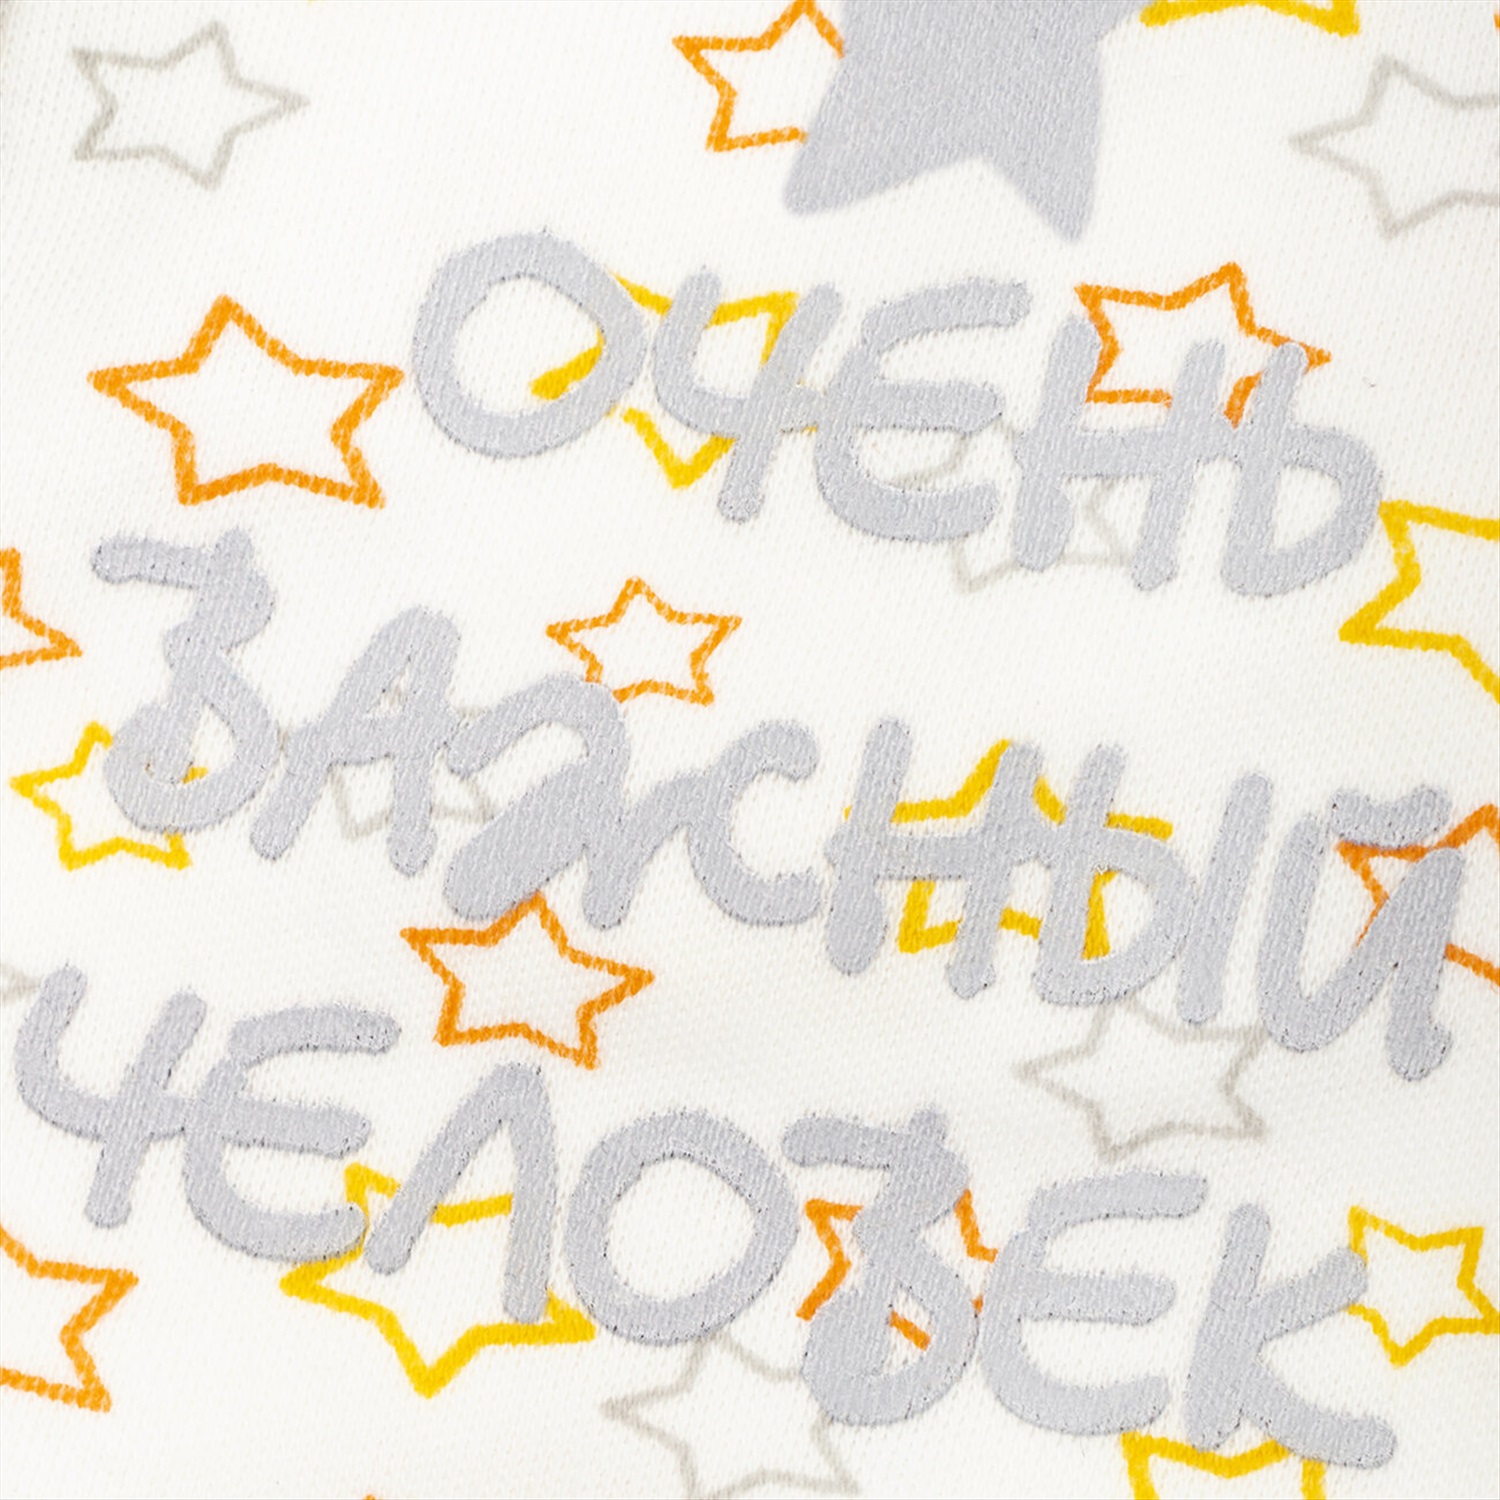 ОЧЕНЬ
ВАЖНЫЙ
ЧЕЛОВЕК